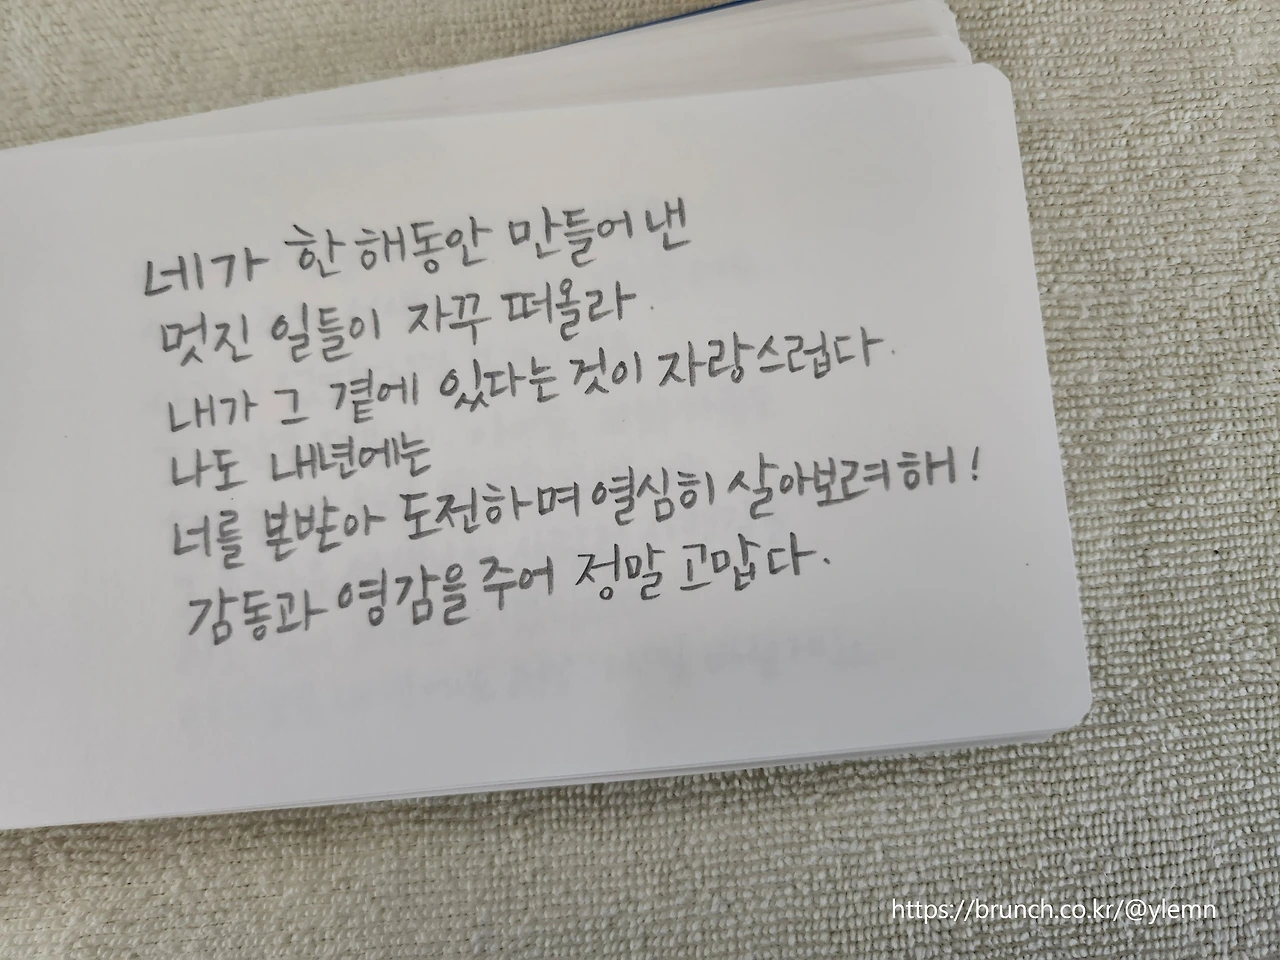 네가 한 해동안 만들어 낸
멋진 일들이 자꾸 떠올라.
내가 그 곁에 있다는 것이 자랑스럽다.
나도 내년에는
너를 본받아 도전하며 열심히 살아보려 해!
감동과 영감을 주어 정말 고맙다.
https://brunch.co.kr/@ylemn